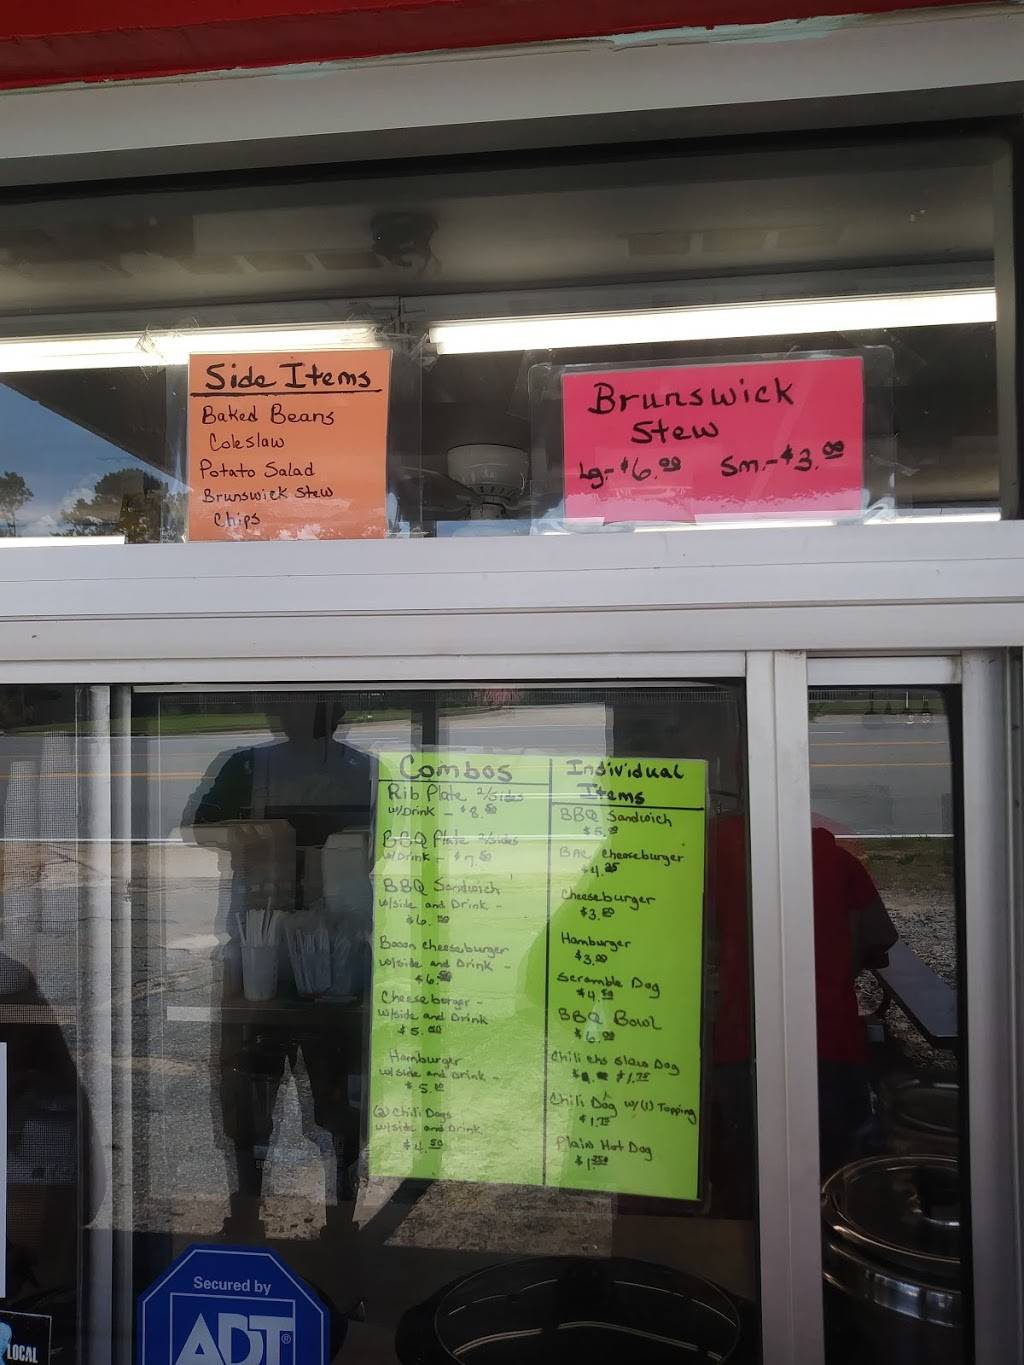 Side Items
Baked Beans
Coleslaw
Potato Salad
Brunswick Stew
Chips
Brunswick
Stew
Lg-$6.00 Sm.-$3.00
Combos
Rib Plate 2/sides
w/Drink - $8.50
BBQ Plate 2/sides
w/Drink - $7.50
BBQ Sandwich
w/side and Drink -
$6.
Bacon Cheeseburger
w/side and Drink -
$6.50
Cheeseburger -
w/side and Drink
$5.00
Hamburger
w/side and Drink -
$5.
(2) Chili Dogs
w/side and Drink
$4.50
Individual
Items
BBQ Sandwich
$5.
cheeseburger
$4.25
Cheeseburger
$3.
Hamburger
$3.00
Scramble Dog
$4.50
BBQ Bowl
$6.00
Chili chs slaw Dog
$1.75
Chili Dog w/(1) Topping
$1.
Plain Hot Dog
$1.
Secured by
ADT®
LOCAL